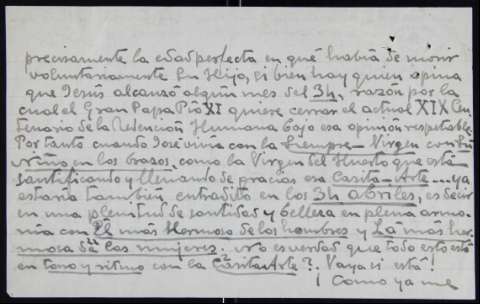 precisamente la edad perfecta en qué había de morir
voluntariamente Su Hijo, si bien hay quien opina
que Jesús alcanzó algún mes del 34, razón por la
cual el Gran Papa Pío XI quiere cerrar el actual XIX Cen
tenario de la Redención Humana bajo esa opinión respetable.
Por tanto cuando José vivía con la Siempre-Virgen con su
Niño en los brazos, como la Virgen del Huerto que está
santificando y llenando de gracias esa Casita-Arte... ya
estaría también entradito en los 34 abriles, es decir
en una plenitud de santidad y belleza en plena armo-
nía con El más Hermoso de los hombres y La más her-
mosa de las mujeres. ¿No es verdad que todo esto está
en tono y ritmo con la Casita Arte? ¡Vaya si está!
¡Como ya me